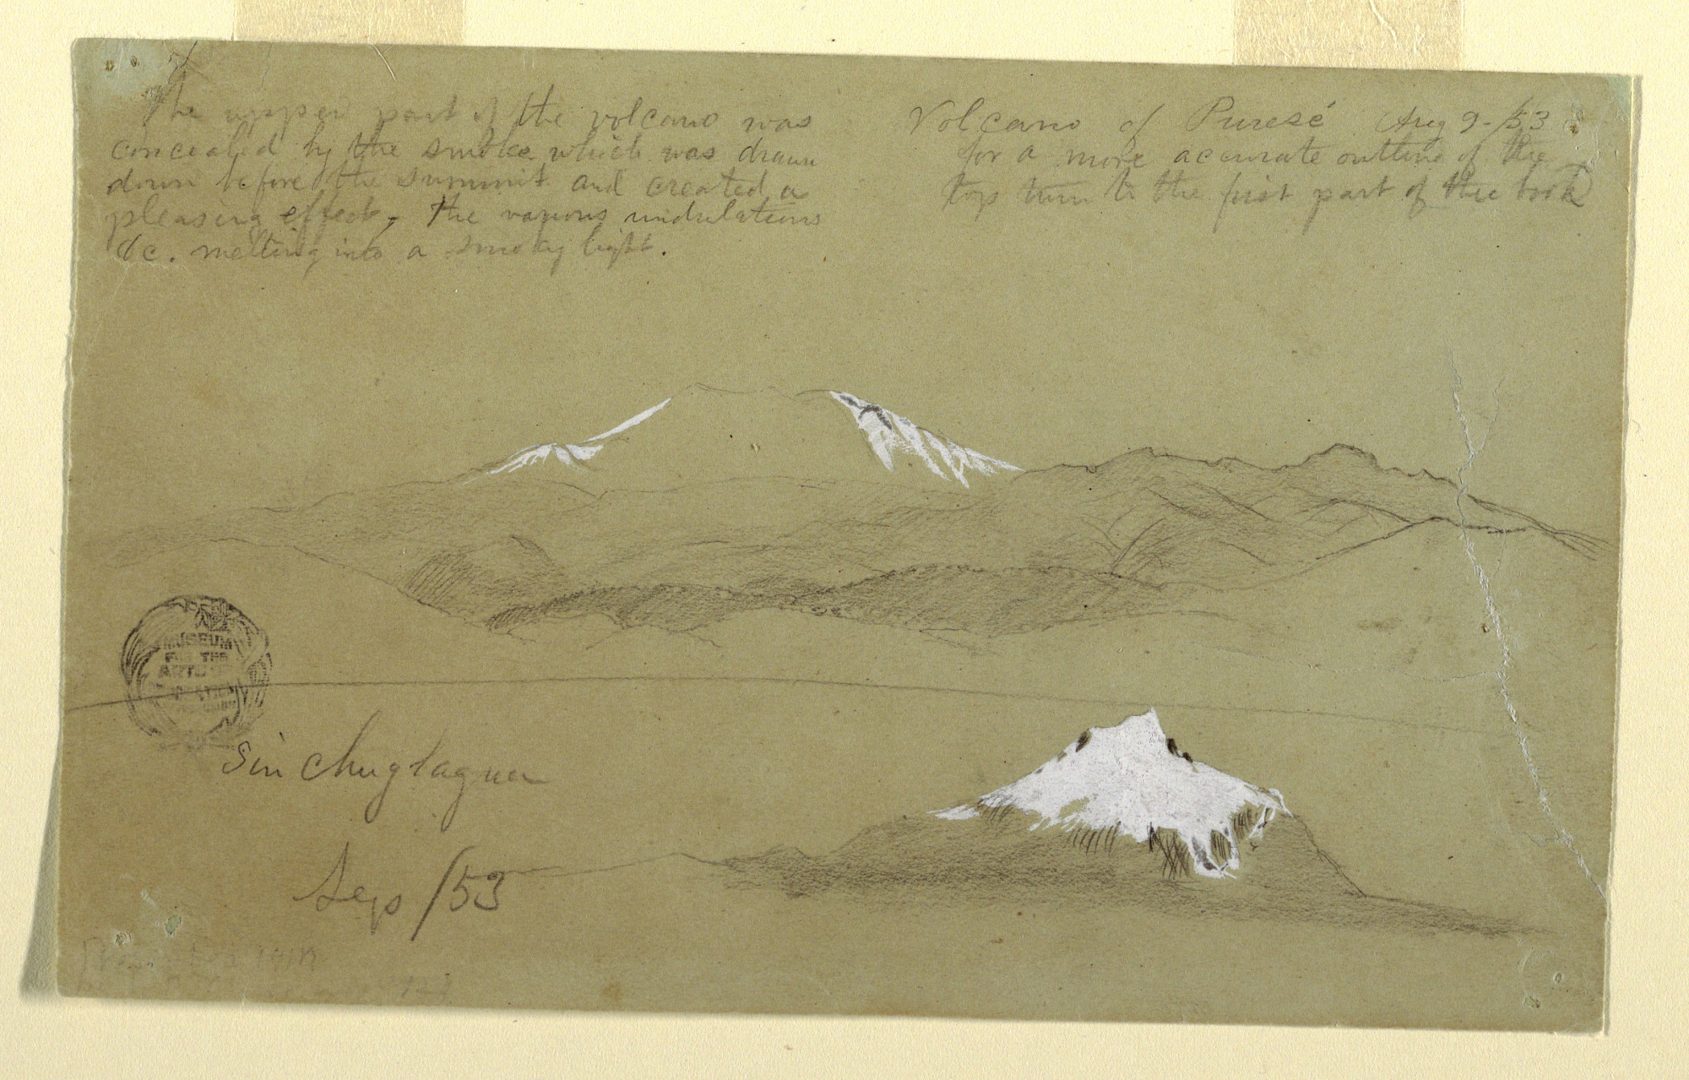 The upper part of the volcano was
concealed by the smoke which was drawn
down before the summit and created a
pleasing effect, the various undulations
&c. melting into a smoky light.
Volcano of Puresé Aug 9-/53
for a more accurate outline of the
top turn to the first part of the book
MUSEUM
FOR THE
ARTS
Sin chuglagua
Sep /53